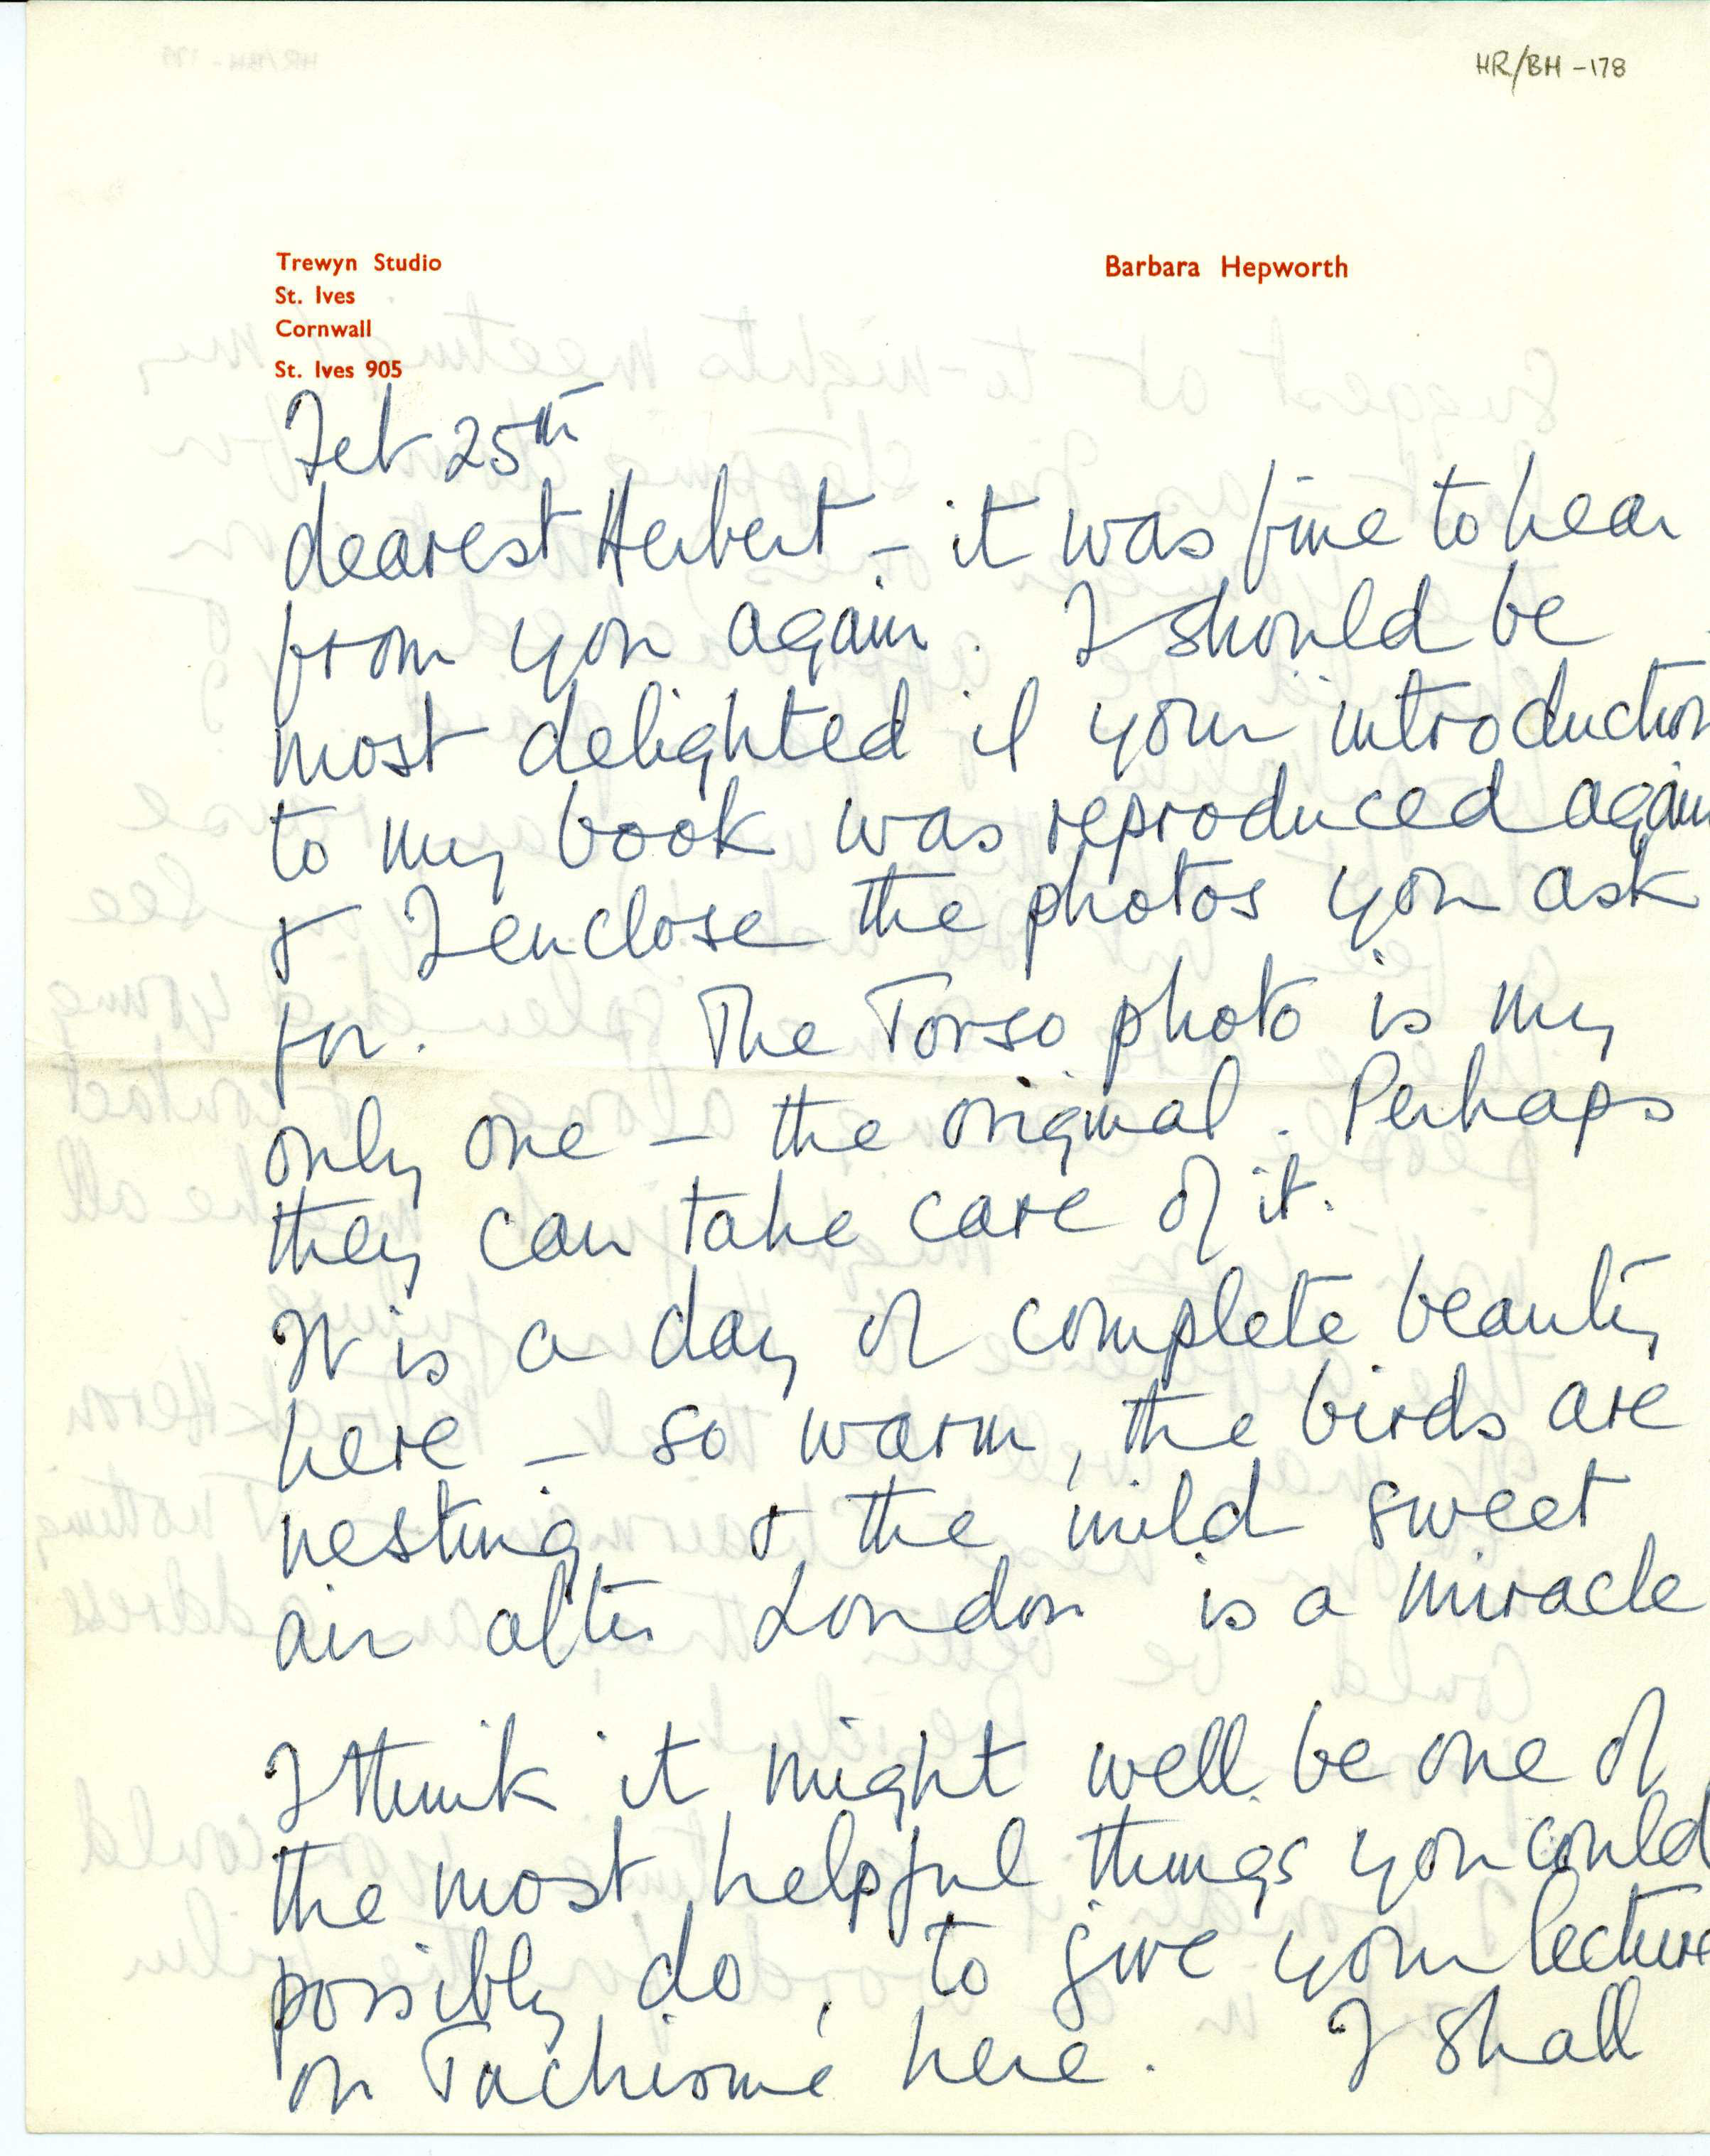 HR/BH-178
Trewyn Studio
St. Ives
Cornwall
St. Ives 905
Barbara Hepworth
Feb 25th
dearest Herbert – it was fine to hear
from you again. I should be
most delighted if your introduction
to my book was reproduced again
& I enclose the photos you ask
for. The Torso photo is my
only one – the original. Perhaps
they can take care of it.
It is a day of complete beauty
here – so warm, the birds are
nesting & the mild sweet
air after London is a miracle
I think it might well be one of
the most helpful things you could
possibly do, to give your lecture
on Tachisme here. I shall